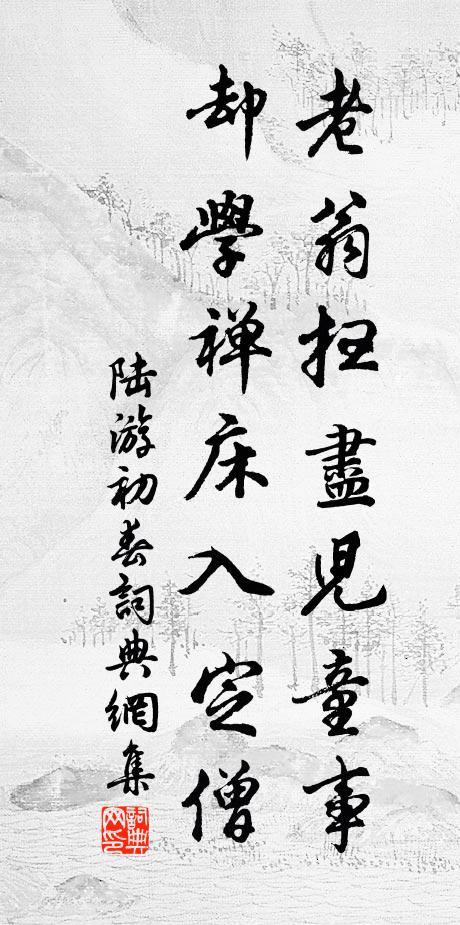 老翁扫盡児童事
却學禅床入定僧
陆游初春詞典網集
詞典网印